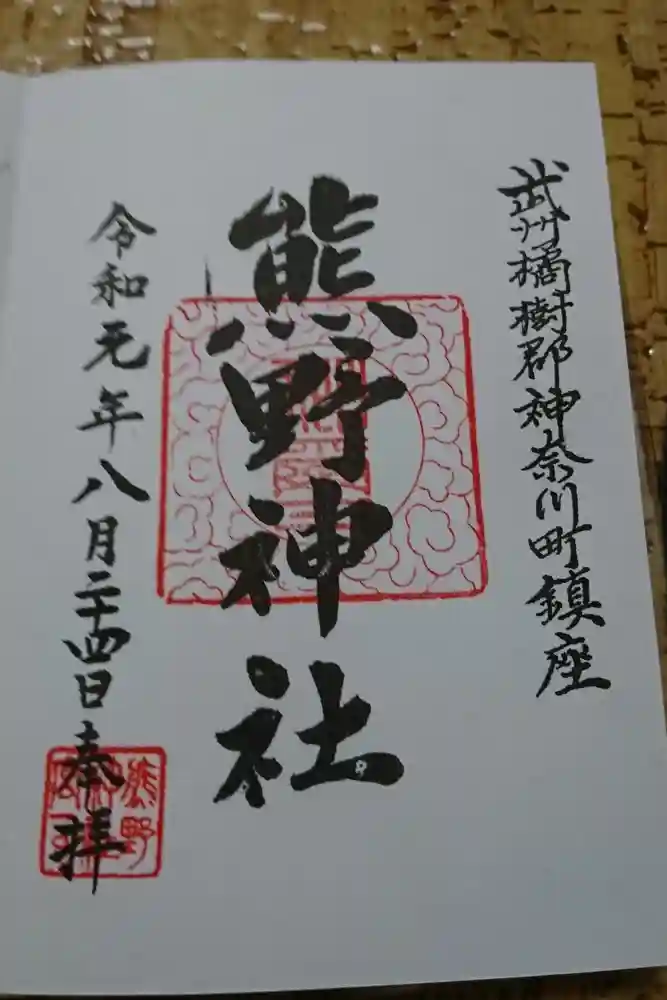 武州橘樹郡神奈川町鎮座
熊野神社
令和元年八月二十四日奉拝